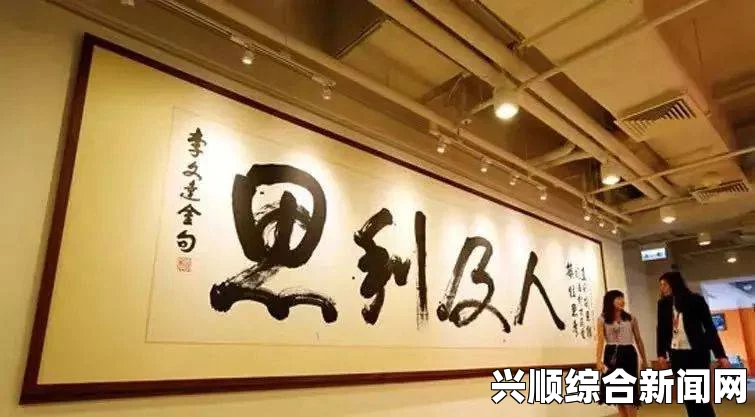 李文達金句
思利及人
換位思考
兴顺综合新闻网